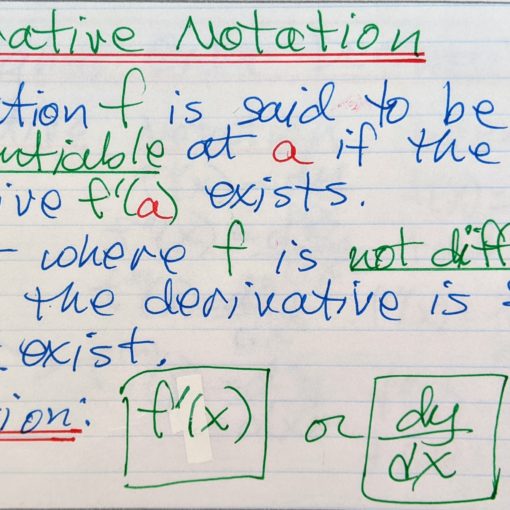 ative Notation
ction f is said to be
ntiable at a if the
ive f'(a) exists.
- where f is not diff
the derivative is
exist.
ion: f'(x) or dy/dx